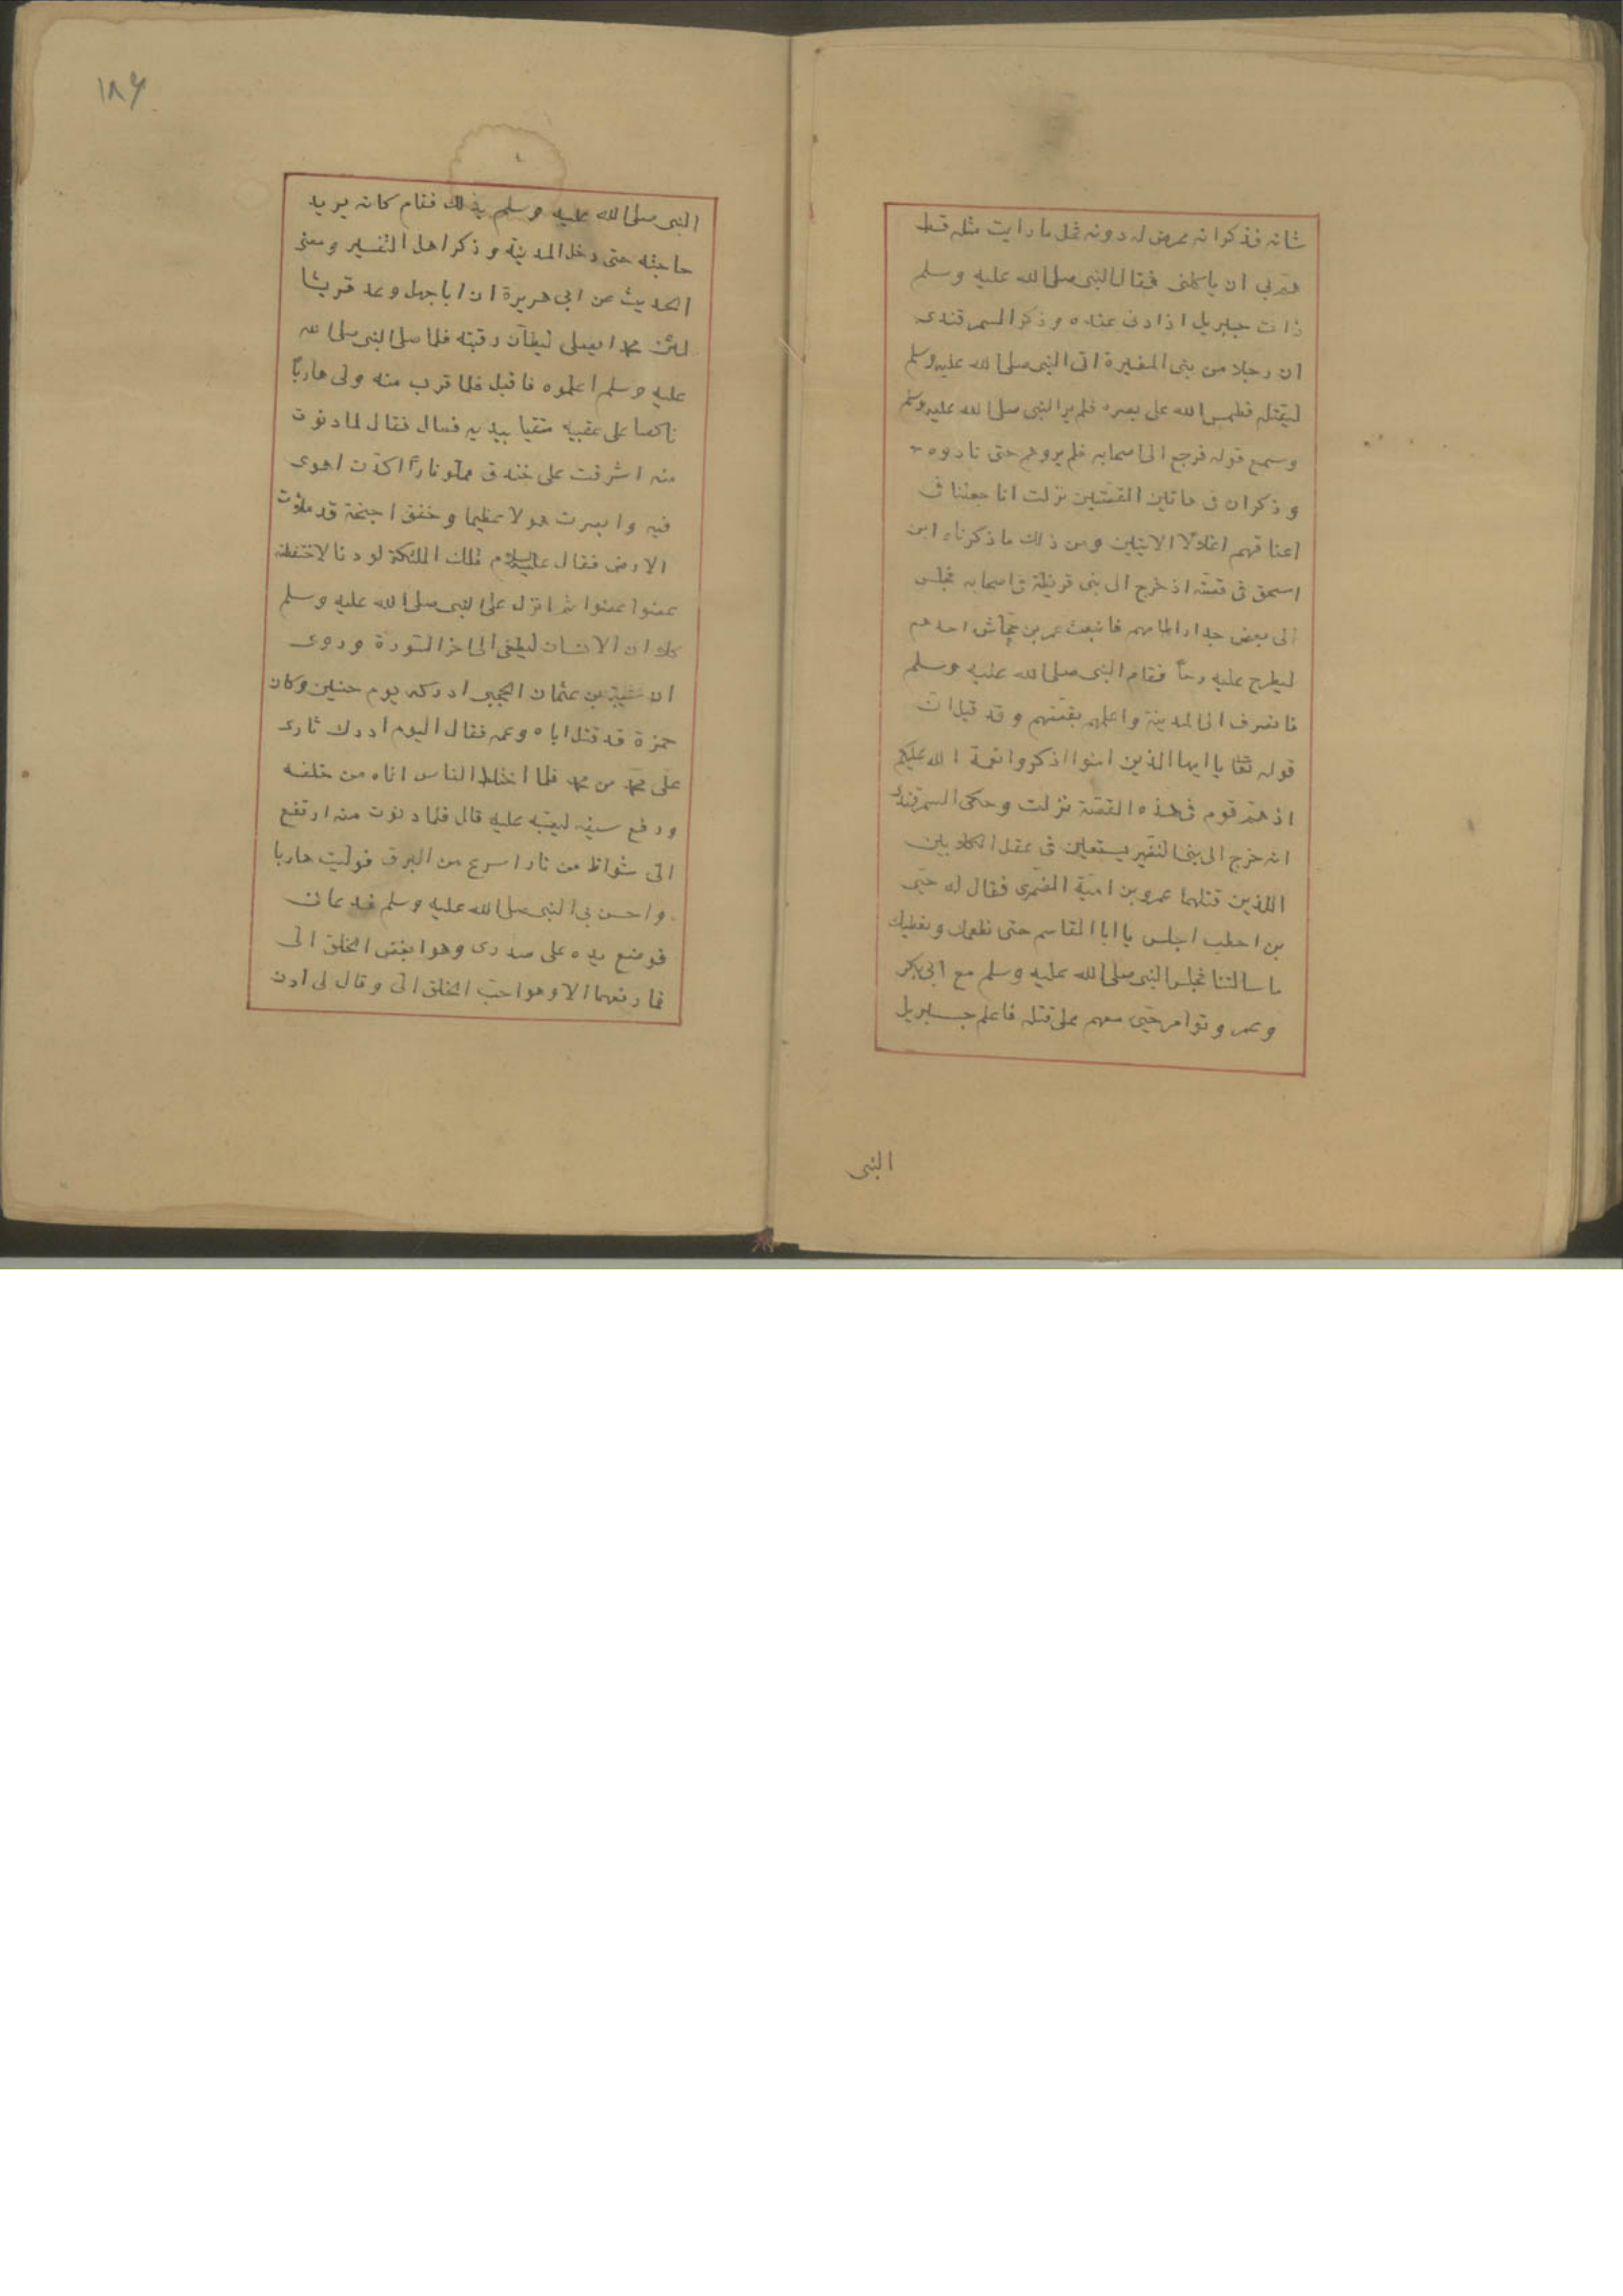 شانه فذكر انه عرض له دونه فحل ما رايت مثله قط
هم بي ان ياكلنى فقال النبى صلى الله عليه وسلم
ذاك جبريل اذا دنى عنده وذكر السمرقندى
ان رجلا من بنى المغيرة اتى النبى صلى الله عليه وسلم
ليقتله فطمس الله على بصره فلم ير النبى صلى الله عليه وسلم
وسمع قوله فرجع الى اصحابه فلم يروهم حتى نادوه
وذكر ان فى هاتين القصتين نزلت انا جعلنا فى
اعناقهم اغلالا الايتين ومن ذلك ما ذكرناه ابن
اسحق فى قصته اذ خرج الى بنى قريظة فى اصحابه فجلس
الى بعض جدار اطامهم فانبعث عمر بن جحاش احدهم
ليطرح عليه رحاً فقام النبى صلى الله عليه وسلم
فانصرف الى المدينة واعلمهم بقصتهم وقد قيل ان
قوله تعا يا ايها الذين امنوا اذكروا نعمة الله عليكم
اذ هم قوم فى هذه القصة نزلت وحكى السمرقندى
انه خرج الى بنى النضير يستعين فى عقل الكلابين
اللذين قتلهما عمرو بن امية الضمرى فقال له حيى
بن اخطب اجلس يا ابا القاسم حتى نطعمك ونعطيك
ما سالتنا فجلس النبى صلى الله عليه وسلم مع ابى بكر
وعمر وتوامر حيى معهم على قتله فاعلم جبريل
النبى
١٨٦
النبى صلى الله عليه وسلم بذلك فقام كانه يريد
حاجته حتى دخل المدينة وذكر اهل التفسير ومعنى
الحديث عن ابى هريرة ان ابا جهل وعد قريشا
لئن محمدا يصلى ليطأن رقبته فلما صلى النبى صلى الله
عليه وسلم اعلموه فاقبل فلما قرب منه ولى هارباً
ناكصا على عقبيه متقيا بيديه فسال فقال لما دنوت
منه اشرفت على خندق مملو ناراً كدت اهوى
فيه وابصرت هولا عظيما وخفق اجنحة قد ملأت
الارض فقال عليه السلام تلك الملئكة لو دنا لاختطفته
عضوا عضوا ثم انزل على النبى صلى الله عليه وسلم
كلا ان الانسان ليطغى الى اخر السورة وروى
ان شيبة بن عثمان الحجبى ادركه يوم حنين وكان
حمزة قد قتل اباه وعمه فقال اليوم ادرك ثارى
على محمد من محمد فلما اختلط الناس اتاه من خلفه
ورفع سيفه ليصبه عليه قال فلما دنوت منه ارتفع
الى شواظ من نار اسرع من البرق فوليت هاربا
واحس بى النبى صلى الله عليه وسلم فدعانى
فوضع يده على صدرى وهو ابغض الخلق الى
فما رفعها الا وهو احب الخلق الى وقال لى ادن